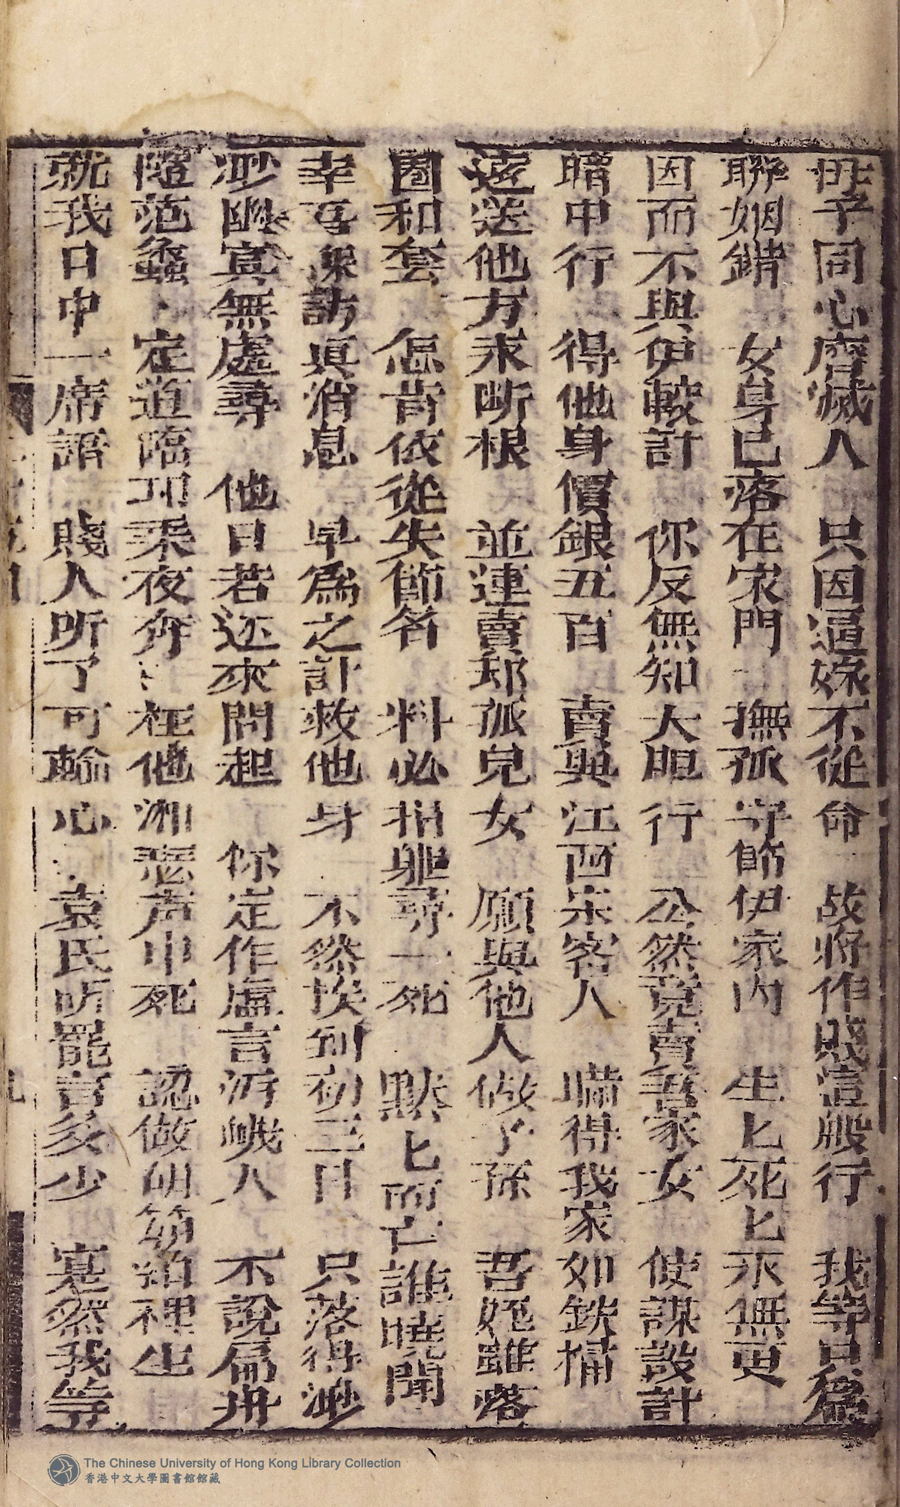 母子同心磨滅人　只因逼嫁不從命　故將作賤這般行　我等只為
聯姻錯　女身已落在宋門　撫孤守節伊家內　生匕死匕永無更
因而不與伊較計　你反無知大胆行　公然竟賣吾家女　使謀設計
暗中行　得他身價銀五百　賣與江西宋客人　瞞得我家如鉄桶
遠送他方求斷根　並連賣却孤兒女　願與他人做子孫　吾姪雖落
圈和套　怎肯依從失節名　料必捐軀尋一死　默匕而亡誰曉聞
幸吾探訪真消息　早為之計救他身　不然挨到初三日　只落得渺
渺幽冥無處尋　他日若还來問起　你定作虛言浜人　不說扁舟
隨范蠡　定道臨邛乘夜奔　枉他湘瑟声中死　認做胡笳拍裡生
就我日中一席語　賤人听了可輸心　袁氏听罷言多少　寔然我等
The Chinese University of Hong Kong Library Collection
香港中文大學圖書館館藏